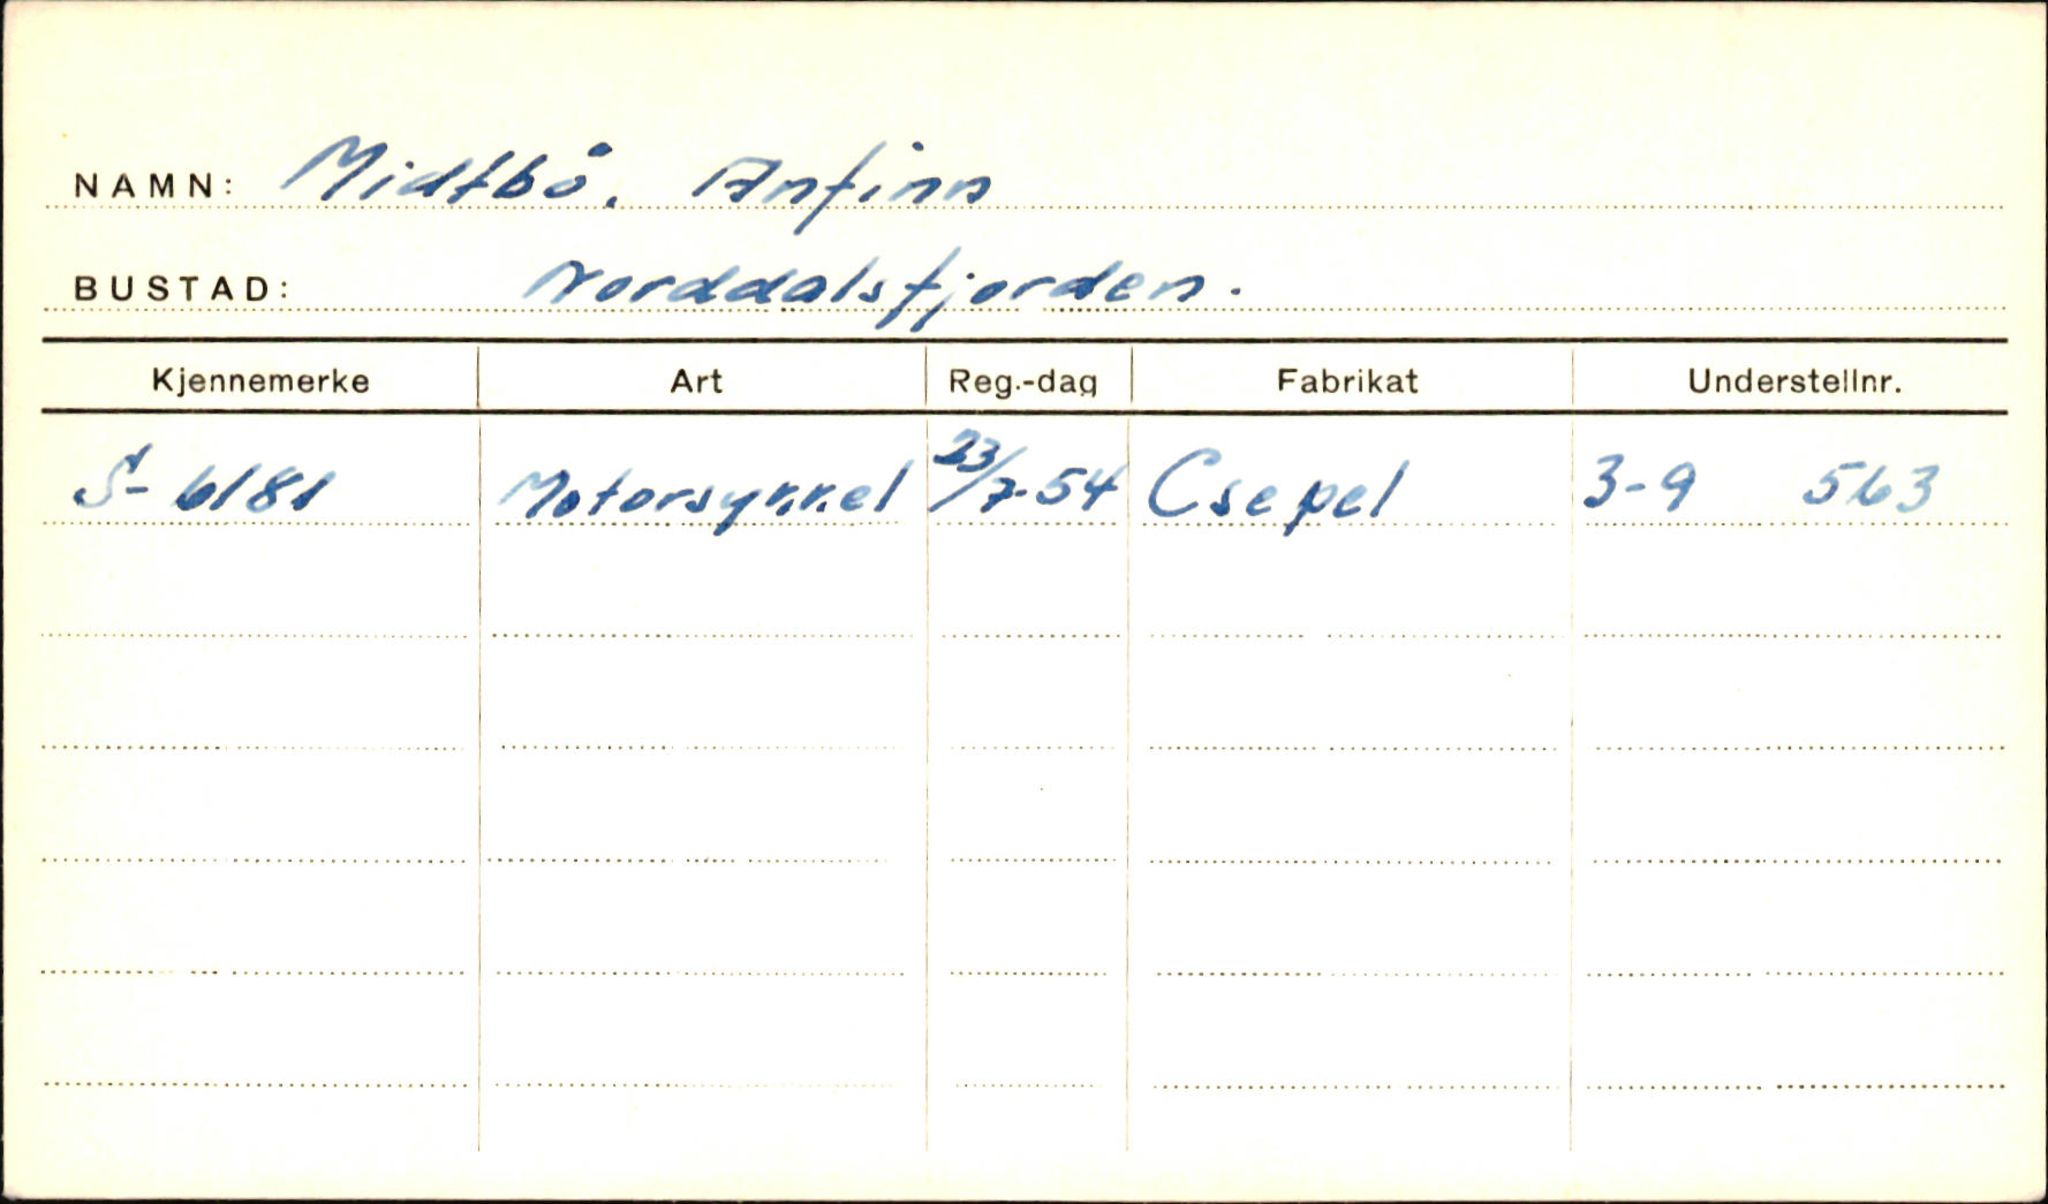 NAMN: Midtbö, Anfinn
BUSTAD: Norddalsfjorden.
Kjennemerke Art Reg.-dag Fabrikat Understellnr.
S- 6181 Motorsykkel 23/7-54 Csepel 3-9 563